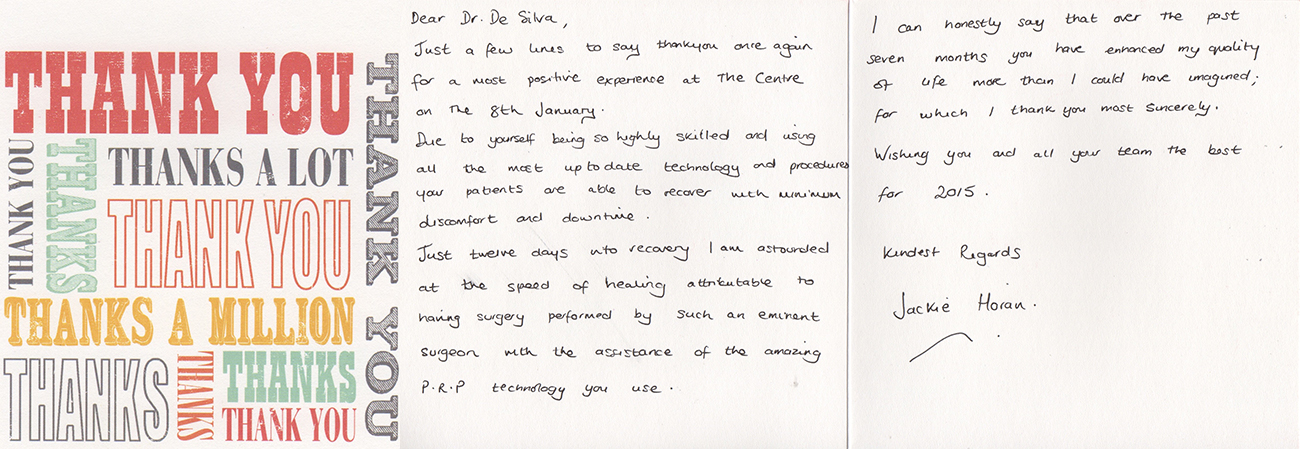 THANK YOU
THANK YOU
THANKS
THANKS A LOT
THANK YOU
THANKS A MILLION
THANKS
THANKS
THANKS
THANK YOU
THANK YOU
Dear Dr. De Silva,
Just a few lines to say thankyou once again
for a most positive experience at The Centre
on The 8th January.
Due to yourself being so highly skilled and using
all the most up to date technology and procedures
your patients are able to recover with minimum
discomfort and downtime.
Just twelve days into recovery I am astounded
at the speed of healing attributable to
having surgery performed by such an eminent
surgeon with the assistance of the amazing
P.R.P technology you use.
I can honestly say that over the past
seven months you have enhanced my quality
of life more than I could have imagined;
for which I thank you most sincerely.
Wishing you and all your team the best
for 2015.
Kindest Regards
Jackie Horan.